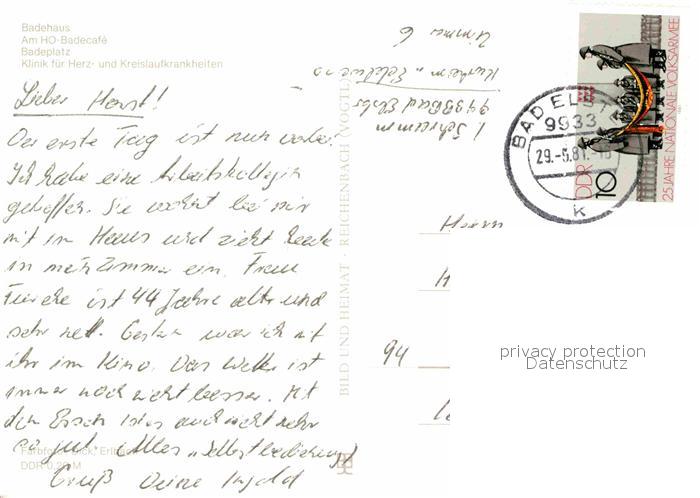 Badehaus
Am HO-Badecafé
Badeplatz
Klinik für Herz- und Kreislaufkrankheiten
Lieber Horst!
Der erste Tag ist nun vorbei.
Ich habe eine Arbeitskollegin
getroffen. Sie wohnt bei mir
mit im Haus und zieht heute
in mein Zimmer ein. Frau
ist 44 Jahre alt und
sehr nett. Gestern war ich mit
ihr im Kino. Das Wetter ist
immer noch nicht besser. Mit
dem Essen ist es auch nicht mehr
so gut. Alles "Selbstbedienung"
Gruß Deine
Farbfoto: Dick, Erlbach
DDR 0,20 M
BILD UND HEIMAT · REICHENBACH (VOGTL)
I. Schramm
9933 Bad Elster
Kurheim "Edelweiß"
Zimmer 6
BAD ELSTER
9933
29.-5.81.-18
k
DDR
10
25 JAHRE NATIONALE VOLKSARMEE
Herrn
H
94
privacy protection
Datenschutz